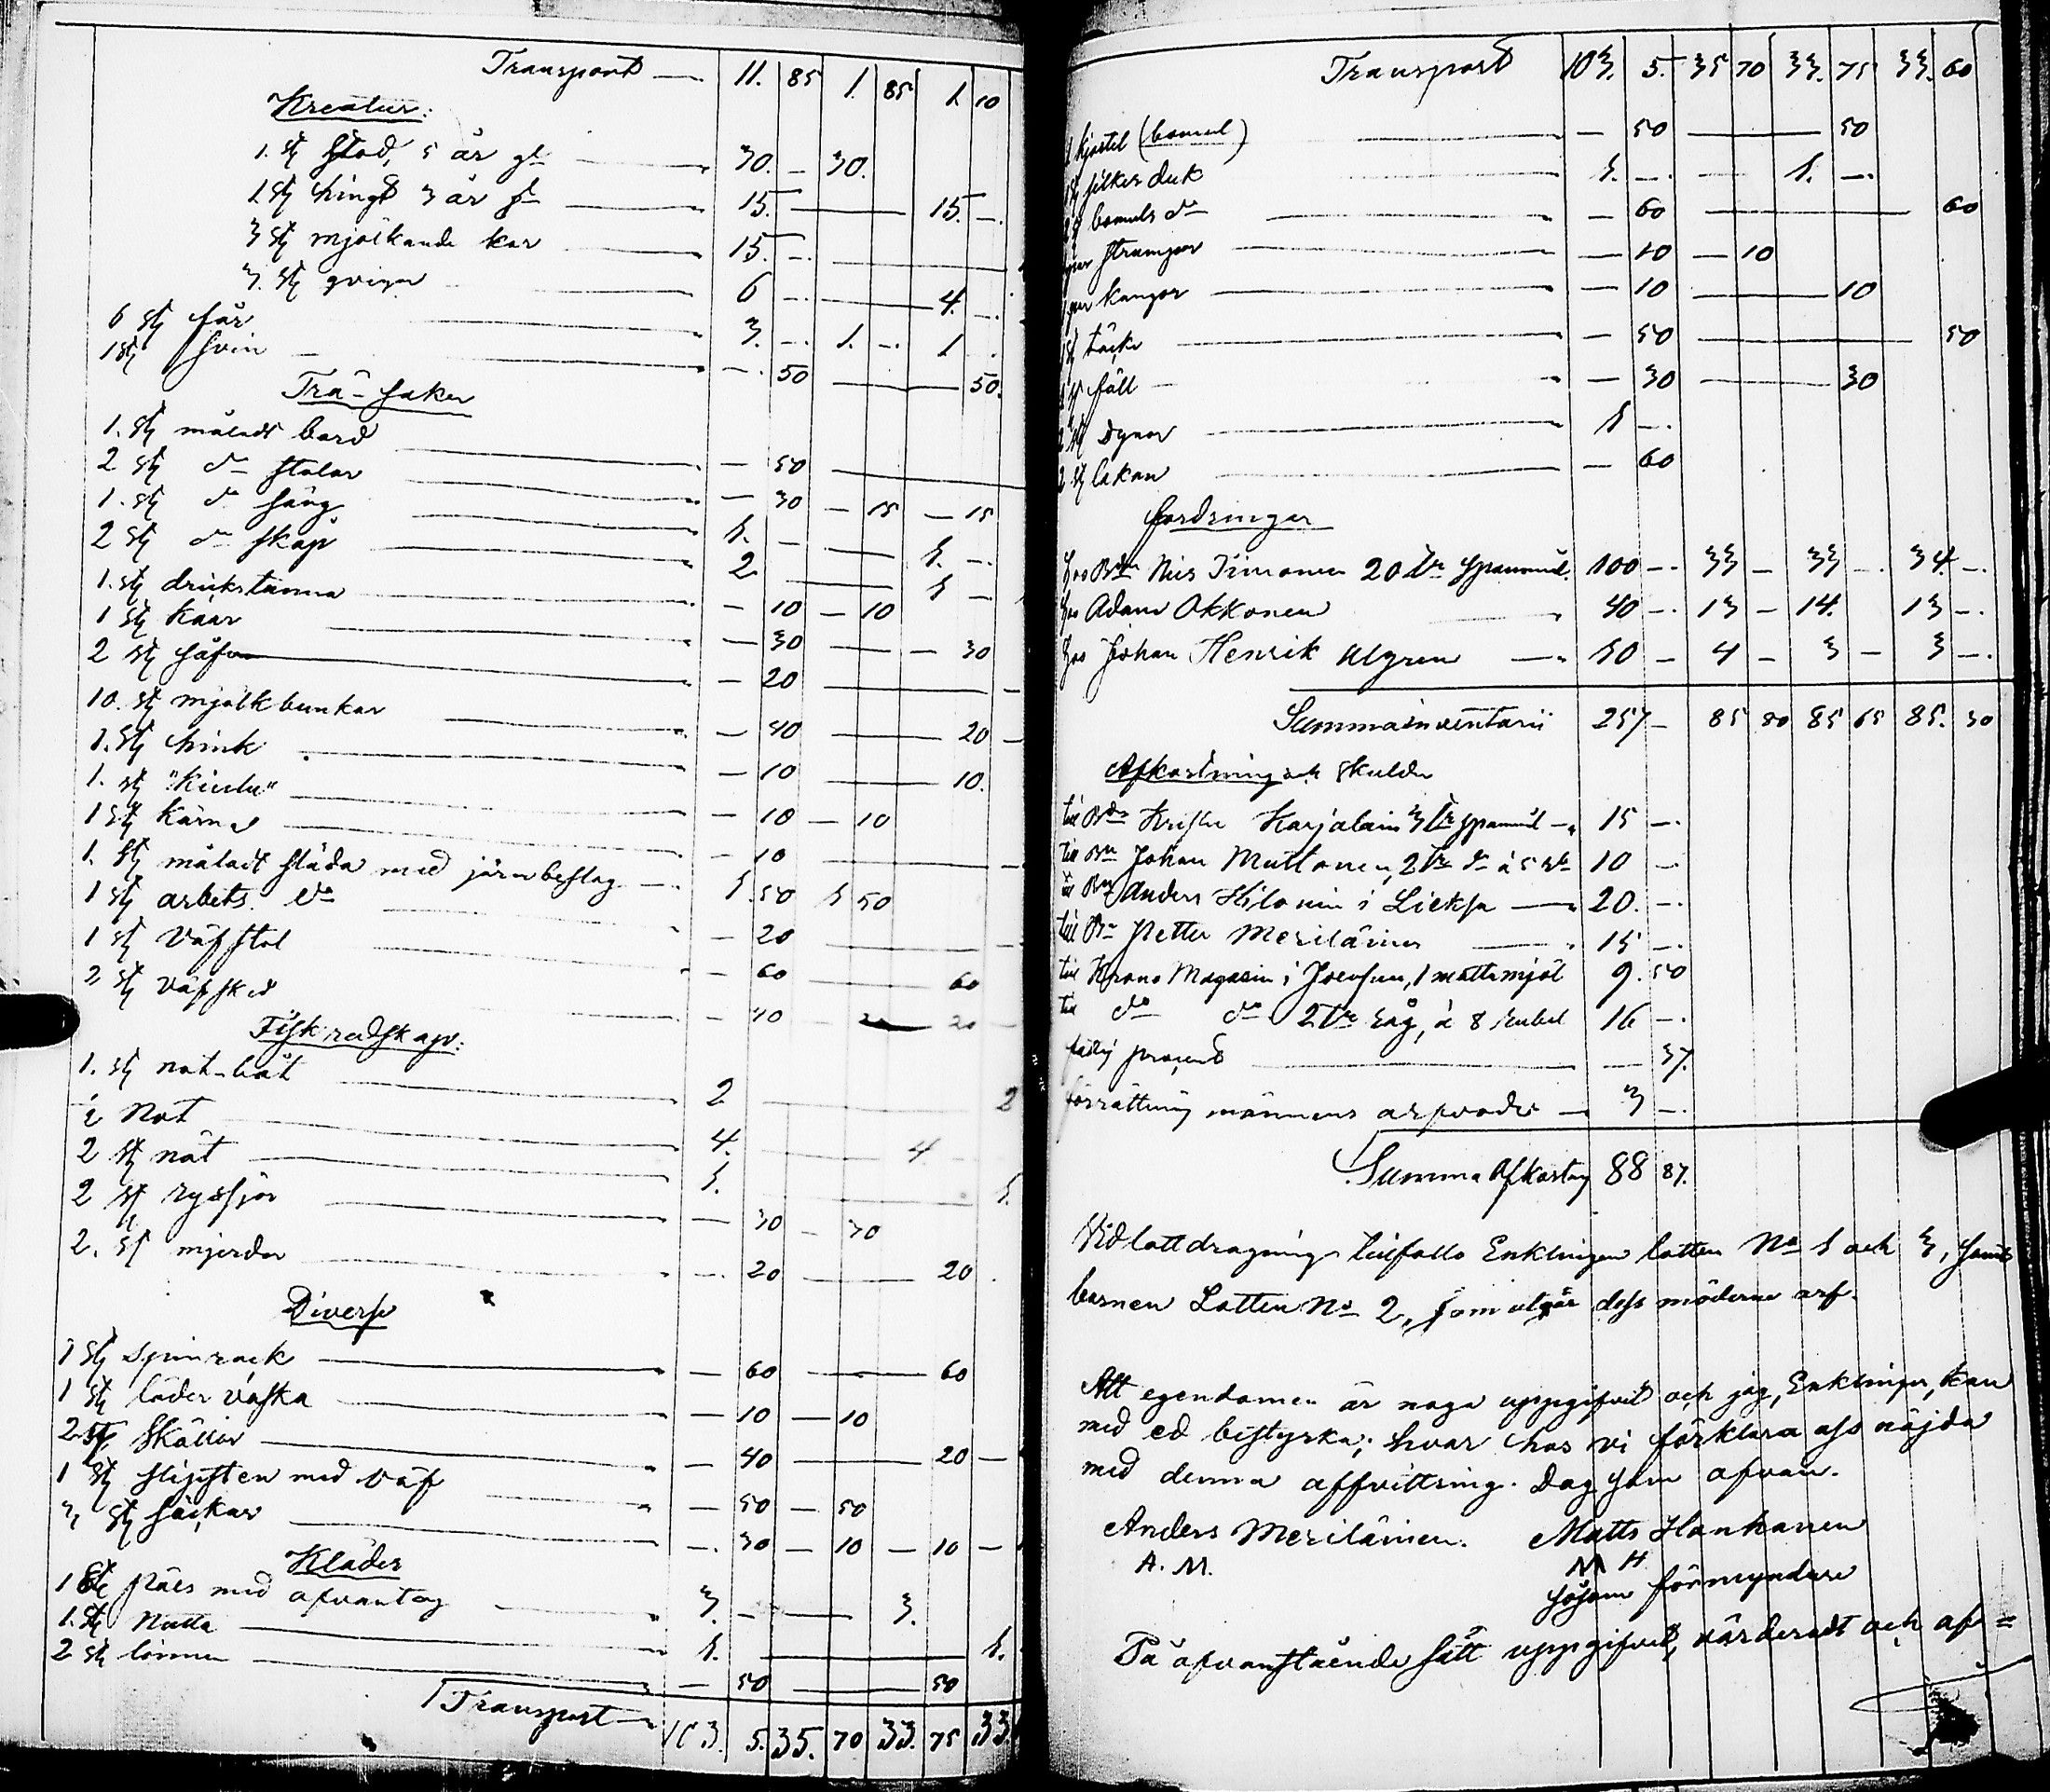 Transport — 11. 85 1. 85 1. 10
Kreatur:
1. st stod, 5 år gl — 30. — 30.
1 st hingst 3 år gl — 15. — 15. —
3 st mjölkande kor — 15. —
3. st qvigor — 6 — 4. —
6 st får — 3. — 1. — 1
1 st svin — 50 — 50.
Trä-saker
1. st måladt bord — 50 —
2 st do stolar — 30 — 15 — 15
1. st do säng — 1. — 1. —
2 st do skåp — 2 — 1 —
1. st drickstanna — 10 — 10
1 st kaar — 30 — 30
2 st såfvar — 20 —
10. st mjölkbunkar — 40 — 20 —
1. st hink — 10 — 10.
1. st "Kiulu" — 10 — 10
1 st kärna — 10 —
1. st målad släda med järnbeslag — 1. 50 1 50
1 st arbets do — 20 —
1 st väfstol — 60 — 60
2 st väfsked — 40 — 20 —
Fiskredskap:
1. st not-båt — 2 — 2
1 Not — 4. — 4
2 st nät — 1. — 1.
2 st ryssjor — 30 — 30
2. st mjerdar — 20 — 20
Diverse
1 st spinrock — 60 — 60
1 st läder väska — 10 — 10
2 st Skällor — 40 — 20 —
1 st slipsten med väf — 50 — 50
3 st säckar — 30 — 10 — 10 —
Kläder
1 st päls med ofvantyg — 3. — 3.
1. st Mutta — 1. — 1.
2 st linnen — 50 — 50
Transport — 103. 5. 35. 70 33. 75 33.
Transport 103. 5. 35 70 33. 75 33. 60
1 kjortel (bomul) — 50 — 50
1 st silkes duk — 1. — 1. —
2 st bomuls do — 60 — 60
par strumpor — 10 — 10
1 par kängor — 10 — 10
1 st täcke — 50 — 50
1 st fäll — 30 — 30
2 st dynor — 1 —
2 st lakan — 60
fordringar
hos Bdn Nils Timonen 20 Tr spannmål 100 — 33 — 33 — 34 —
hos Adam Okkonen — 40 — 13 — 14. 13 —
hos Johan Henrik Algren — 10 — 4 — 3 — 3 —
Summa inventarii 257 — 85 80 85 65 85. 30
Afkortning och skulder
till Bdn Krister Karjalain 3 Tr spannmål — 15 —
till Bn Johan Muttonen, 2 Tr do à 5 Rb 10 —
till Bn Anders Hilonin i Lieksa — 20. —
till Bn Petter Meriläinen — 15 —
till Krono Magasin i Joensuu, 1 matta mjöl 9. 50
till do do 2 Tr råg, à 8 rubel 16 —
fattig procent — 37.
förrättning männens arfvode — 3 —
Summa Afkortng 88 87.
Vid lottdragning tillfalls Enklingen lotten No 1 och 3, samt
barnen Lotten No 2, som utgör dess möderne arf.
Att egendomen är noga uppgifvet och jag, Enklingen, kan
med ed bestyrka; hvar hos vi förklara oss nöjda
med denna affvittring. Dag som ofvan.
Anders Meriläinen. Matts Hanhanen
A. M. M H
såsom förmyndare
På ofvanstående sätt uppgifvet, värderadt och af=